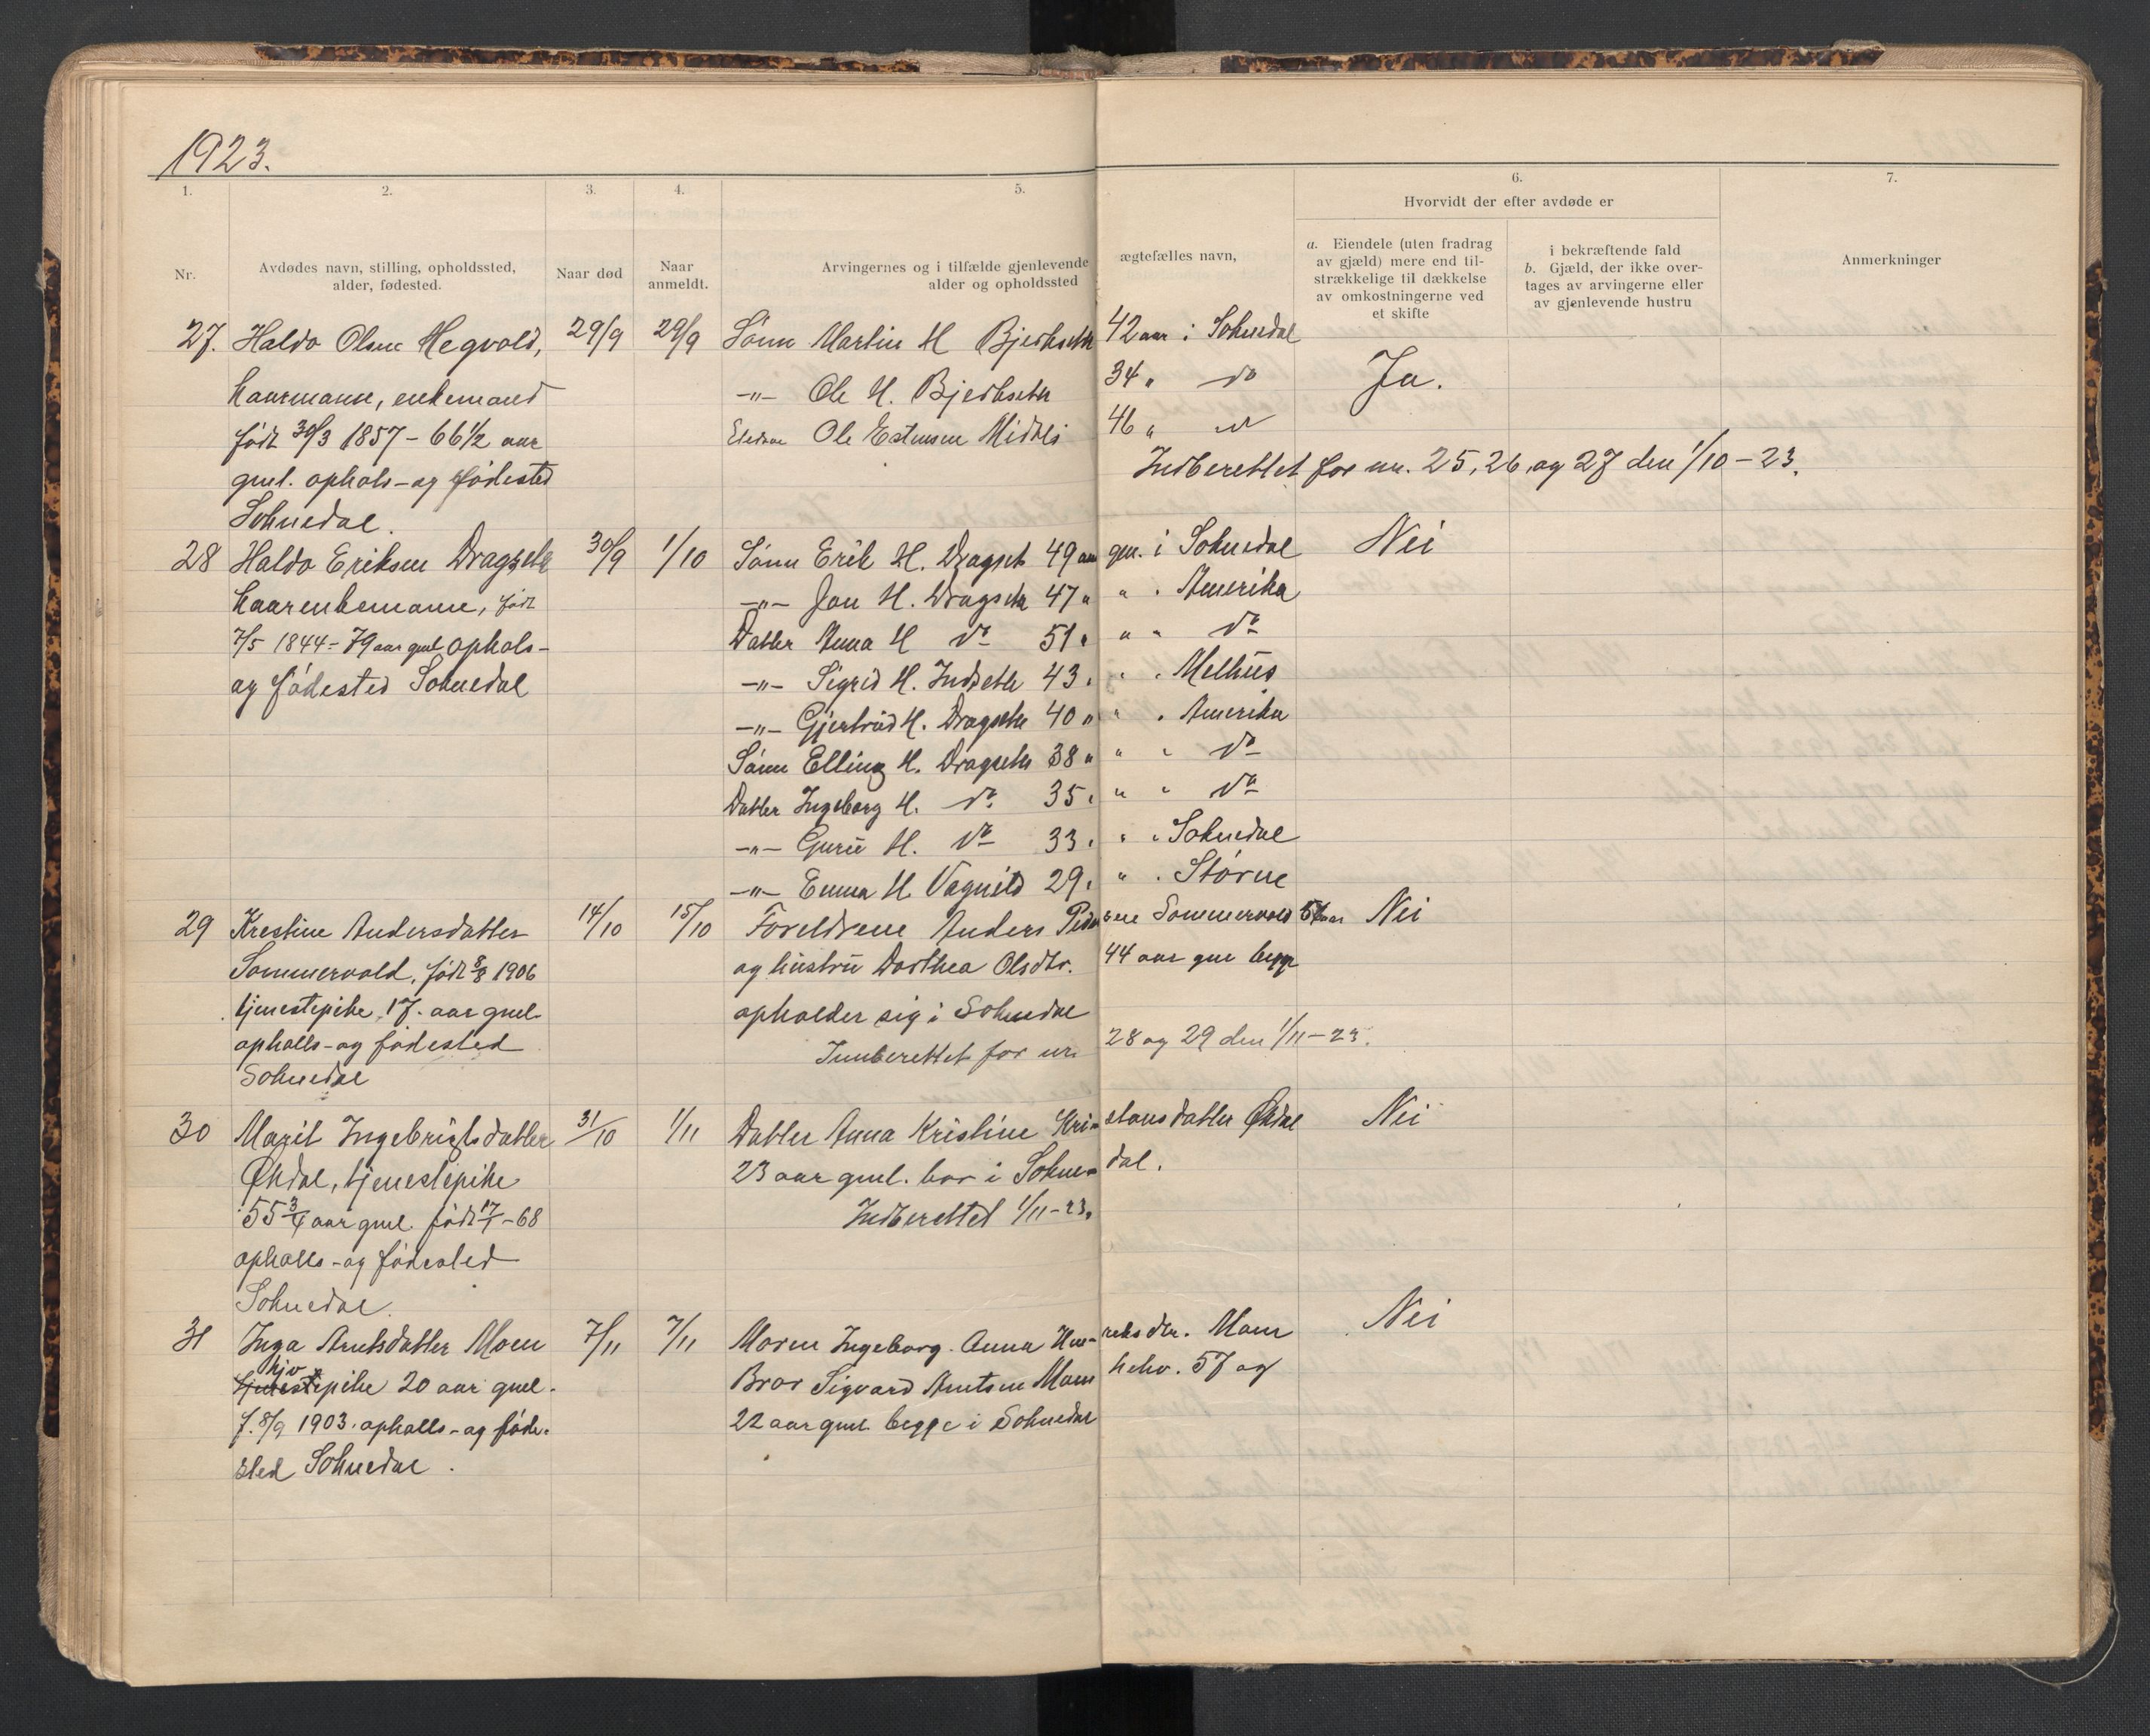 1923.
1. 2. 3. 4. 5. 6. 7.
Hvorvidt der efter avdøde er
Nr.
Avdødes navn, stilling, opholdssted,
alder, fødested.
Naar død
Naar
anmeldt.
Arvingernes og i tilfælde gjenlevende ægtefælles navn,
alder og opholdssted
a. Eiendele (uten fradrag
av gjæld) mere end til-
strækkelige til dækkelse
av omkostningerne ved
et skifte
i bekræftende fald
b. Gjæld, der ikke over-
tages av arvingerne eller
av gjenlevende hustru
Anmerkninger
27. Haldo Olsen Hegvold, 29/9 29/9 Sønn Martin H Bjerkseth 42 aar i Soknedal
kaarmann, enkemand -"- Ole H. Bjerkseth 34 " do Ja.
født 30/3 1857 - 66 1/2 aar Ole Estensen Midtli 46 " do
gml. ophols- og fødested Indberettet for nr. 25, 26, og 27 den 1/10 - 23.
Soknedal.
28 Haldo Eriksen Dragseth 30/9 1/10 Sønn Erik H. Dragset 49 aar gm. i Soknedal Nei
kaarenkemann, født -"- Jon H. Dragseth 47 " " " Amerika
7/5 1844 - 79 aar gml ophols- Datter Anna H do 51 " " " do
og fødested Soknedal -"- Sigrid H. Indseth 43 " " " Melhus
-"- Gjertrud H. Dragseth 40 " " " Amerika
Sønn Elling H. Dragseth 38 " " " do
Datter Ingeborg H. do 35 " " " do
-"- Guru H. do 33 " " " Soknedal
-"- Emma H Vagnild 29 " " " Støren
29 Krestine Andersdatter 14/10 15/10 Foreldrene Anders Pedersen Sommervold aar Nei
Sommervold, født 8/8 1906 og hustru Dorthea Olsdtr. 44 aar gml begge
tjenestepike, 17. aar gml. opholder sig i Soknedal
opholls- og fødested Innberettet for nr. 28 og 29 den 1/11 - 23.
Soknedal
30 Marit Ingebrigtsdatter 31/10 1/11 Datter Anna Kristine Kristansdatter Økdal Nei
Økdal, tjenestepike 23 aar gml. bor i Soknedal.
55 3/4 aar gml. født 17/1 - 68 Indberettet 1/11 - 23.
opholls- og fødested
Soknedal.
31 Inga Arntsdatter Moen 7/11 7/11 Moren Ingeborg Anna Henreksdtr. Moen Nei
hjv
tjenestepike 20 aar gml. Bror Sigvard Arntsen Moen hehv. 57 og
f. 8/9 1903. opholls- og føde- 22 aar gml begge i Soknedal
sted Soknedal.